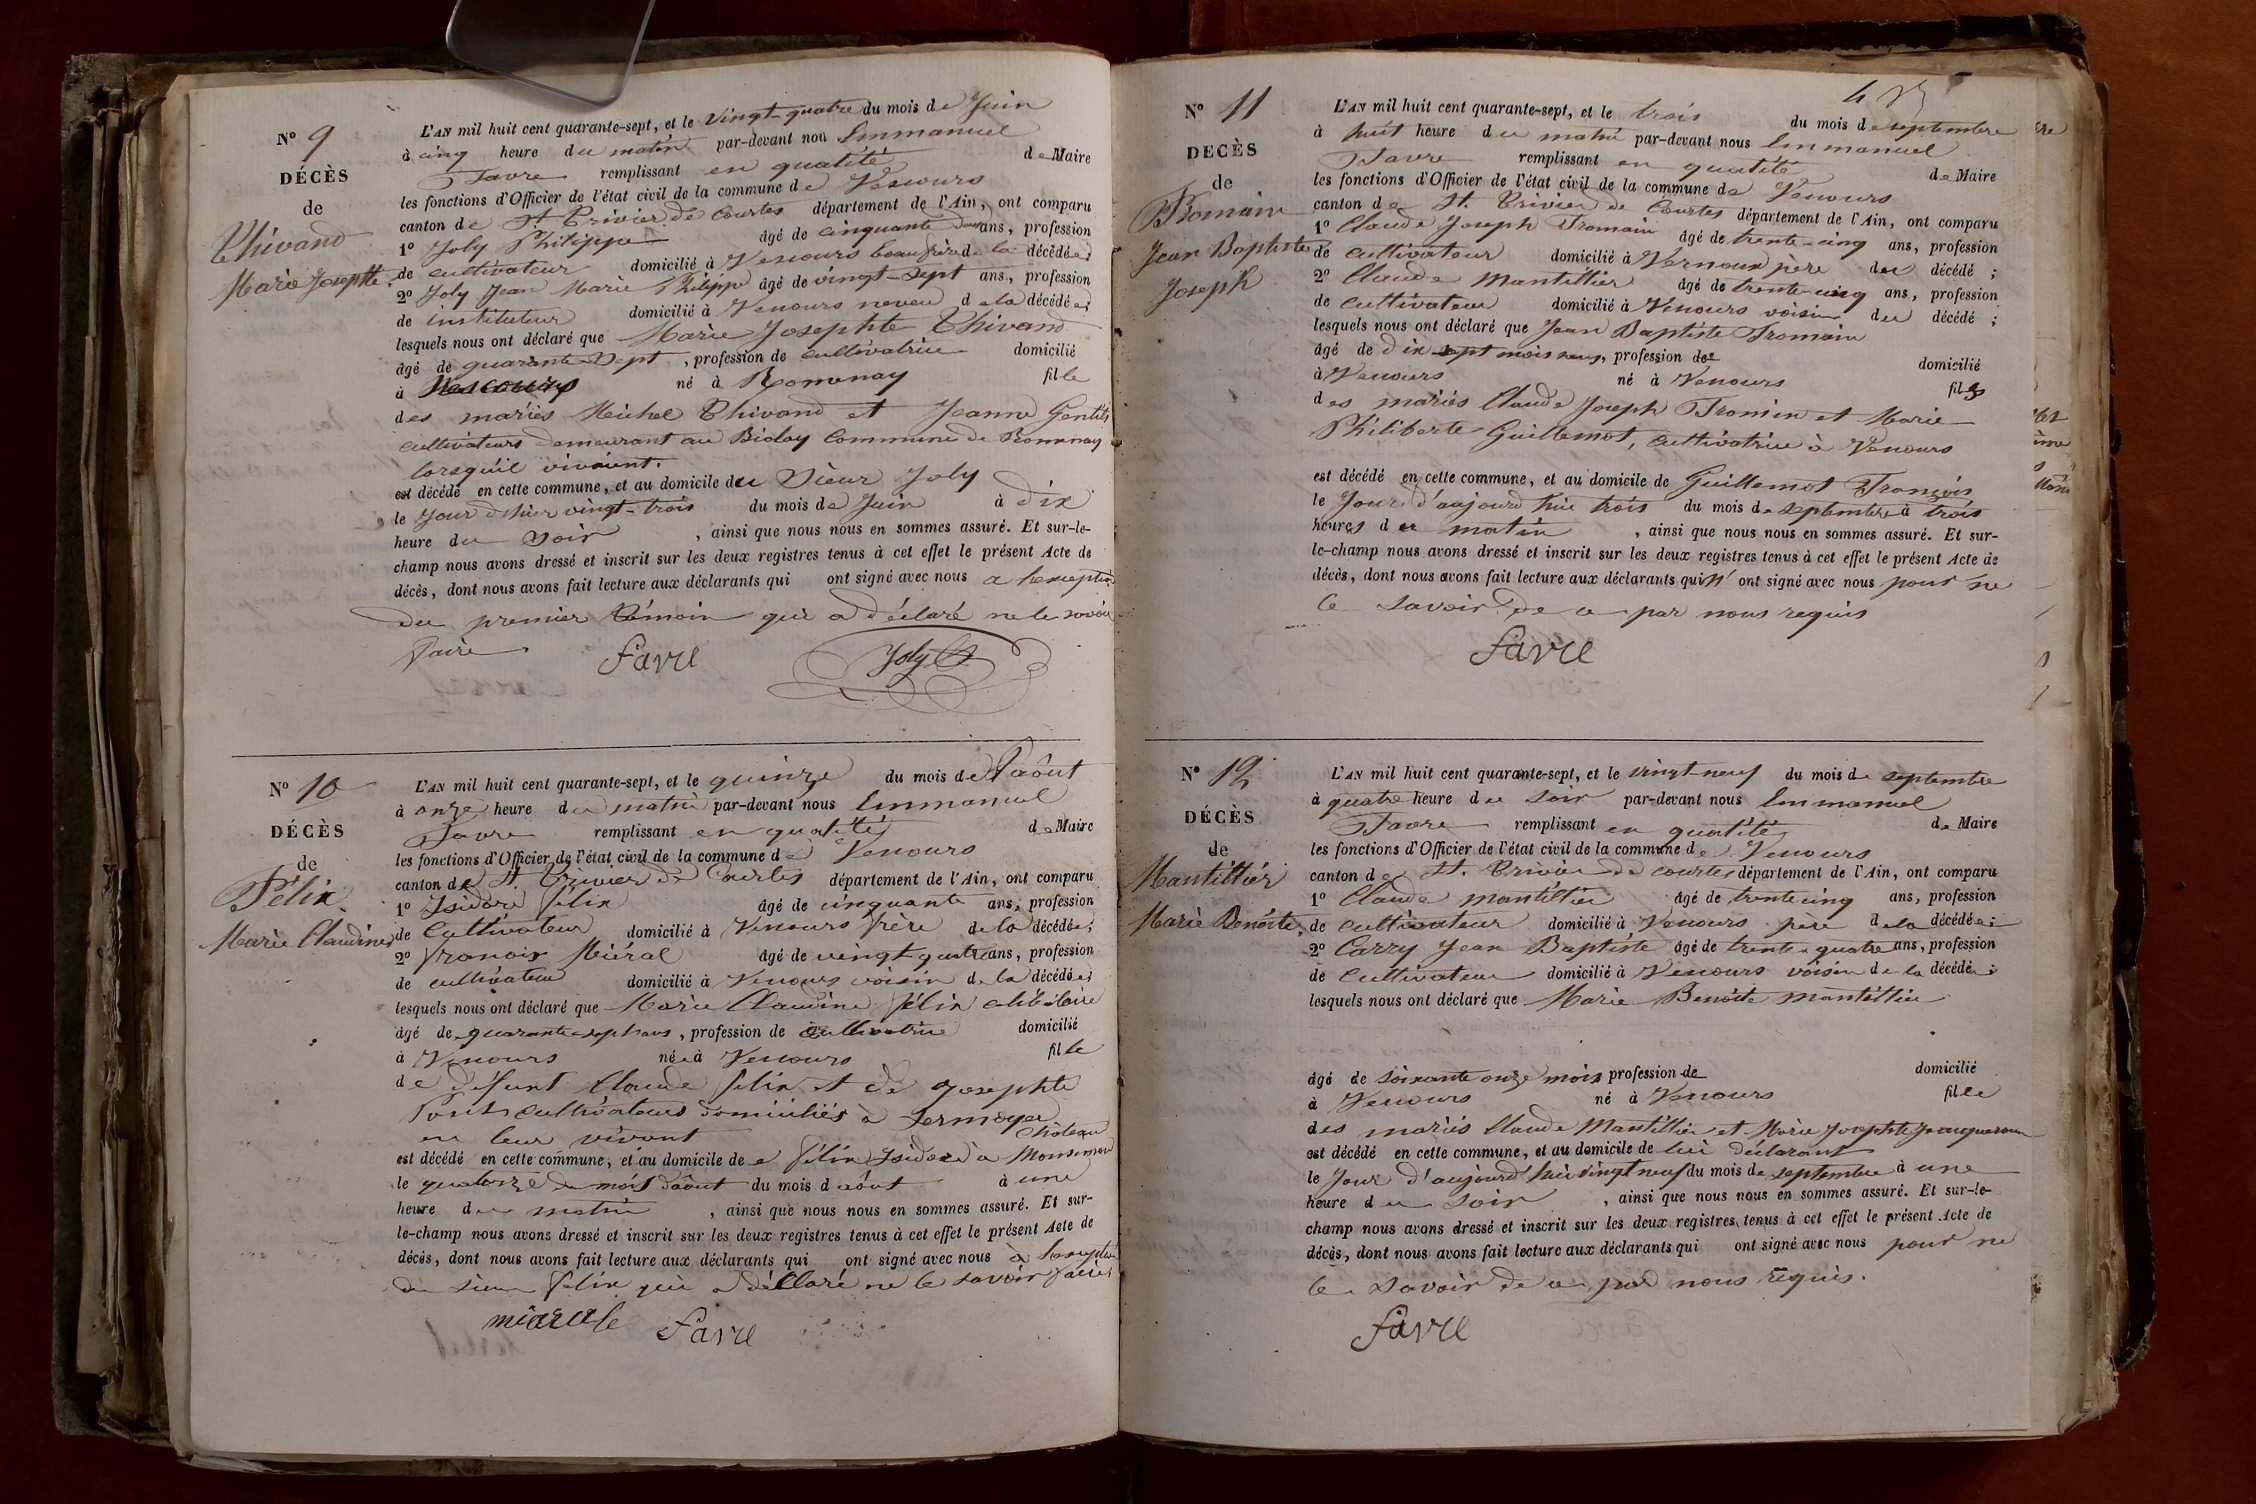 N° 9
DÉCÈS
de
Thivand
Marie Josephte.
L'AN mil huit cent quarante-sept, et le vingt-quatre du mois de Juin
à cinq heure du matin par-devant nou Emmanuel
Favre remplissant en qualité de Maire
les fonctions d'Officier de l'état civil de la commune de Vescours
canton de St. Trivier de Courtes département de l'Ain, ont comparu
1° Joly Philippe âgé de cinquante ans, profession
de cultivateur domicilié à Vescours beaufrère de la décédée;
2° Joly Jean Marie Philippe âgé de vingt-sept ans, profession
de instituteur domicilié à Vescours neveu de la décédée;
lesquels nous ont déclaré que Marie Josephte Thivand
âgé de quarante-sept, profession de cultivatrice domicilié
à Vescours né à Romenay fille
des mariés Michel Thivand et Jeanne Gentil
cultivateurs demeurant au Biolay Commune de Romenay
lorsqu'il vivaient.
est décédé en cette commune, et au domicile du Sieur Joly
le Jour d'hier vingt-trois du mois de Juin à dix
heure du soir, ainsi que nous nous en sommes assuré. Et sur-le-
champ nous avons dressé et inscrit sur les deux registres tenus à cet effet le présent Acte de
décès, dont nous avons fait lecture aux déclarants qui ont signé avec nous a l'exception
du premier témoin qui a déclaré ne le savoir
faire
Favre Joly
N° 10
DÉCÈS
de
Félix
Marie Claudine
L'AN mil huit cent quarante-sept, et le quinze du mois de aôut
à onze heure du matin par-devant nous Emmanuel
Favre remplissant en qualité de Maire
les fonctions d'Officier de l'état civil de la commune de Vescours
canton de St. Trivier de Courtes département de l'Ain, ont comparu
1° Isidore félix âgé de cinquante ans, profession
de Cultivateur domicilié à Vescours frère de la décédée;
2° françois Miéral âgé de vingt quatre ans, profession
de cultivateur domicilié à Vescours voisin de la décédée;
lesquels nous ont déclaré que Marie Claudine félix célibataire
âgé de quarante-sept ans, profession de cultivatrice domicilié
à Vescours née à Vescours fille
de défunt Claude félix et de Josephte
Pont cultivateurs domiciliés à Sermoyer
en leur vivant château
est décédé en cette commune, et au domicile de félix Isidore à Monsimon
le quatorze du mois d'aôut du mois d aôut à une
heure du matin, ainsi que nous nous en sommes assuré. Et sur-
le-champ nous avons dressé et inscrit sur les deux registres tenus à cet effet le présent Acte de
décès, dont nous avons fait lecture aux déclarants qui ont signé avec nous à l'exception
du sieur félix qui a déclaré ne le savoir faire
Favre
N° 11
DECÈS
de
Fromain
Jean Baptiste
Joseph
L'AN mil huit cent quarante-sept, et le trois du mois de septembre
à huit heure du matin par-devant nous Emmanuel
Favre remplissant en qualité de Maire
les fonctions d'Officier de l'état civil de la commune de Vescours
canton de St. Trivier de Courtes département de l'Ain, ont comparu
1° Claude Joseph Fromain âgé de trente-cinq ans, profession
de cultivateur domicilié à Vernoux père du décédé;
2° Claude Mantillier âgé de trente-cinq ans, profession
de cultivateur domicilié à Vescours voisin du décédé;
lesquels nous ont déclaré que Jean Baptiste Fromain
âgé de dix sept mois, profession de domicilié
à Vescours né à Vescours fils
des mariés Claude Joseph Fromin et Marie
Philiberte Guillemot, cultivatrice à Vescours
est décédé en cette commune, et au domicile de Guillemot François
le Jour d'aujourd'hui trois du mois de septembre à trois
heures du matin, ainsi que nous nous en sommes assuré. Et sur-
le-champ nous avons dressé et inscrit sur les deux registres tenus à cet effet le présent Acte de
décès, dont nous avons fait lecture aux déclarants qui n' ont signé avec nous pour ne
le savoir de ce par nous requis
Favre
N° 12
DÉCÈS
de
Mantillier
Marie Benôite.
L'AN mil huit cent quarante-sept, et le vingt neuf du mois de septembre
à quatre heure du soir par-devant nous Emmanuel
Favre remplissant en qualité de Maire
les fonctions d'Officier de l'état civil de la commune de Vescours
canton de St. Trivier de courtes département de l'Ain, ont comparu
1° Claude mantillier âgé de trente cinq ans, profession
de cultivateur domicilié à Vescours père de la décédée;
2° Carry Jean Baptiste âgé de trente-quatre ans, profession
de cultivateur domicilié à Vescours voisin de la décédée;
lesquels nous ont déclaré que Marie Benôite mantillier
âgé de soixante onze mois profession de domicilié
à Vescours né à Vescours fille
des mariés Claude Mantillier et Marie Josephte
est décédé en cette commune, et au domicile de lui déclarant
le Jour d'aujourd'hui vingt neuf du mois de septembre à une
heure du soir, ainsi que nous nous en sommes assuré. Et sur-le-
champ nous avons dressé et inscrit sur les deux registres tenus à cet effet le présent Acte de
décès, dont nous avons fait lecture aux déclarants qui ont signé avec nous pour ne
le savoir de ce par nous requis.
Favre